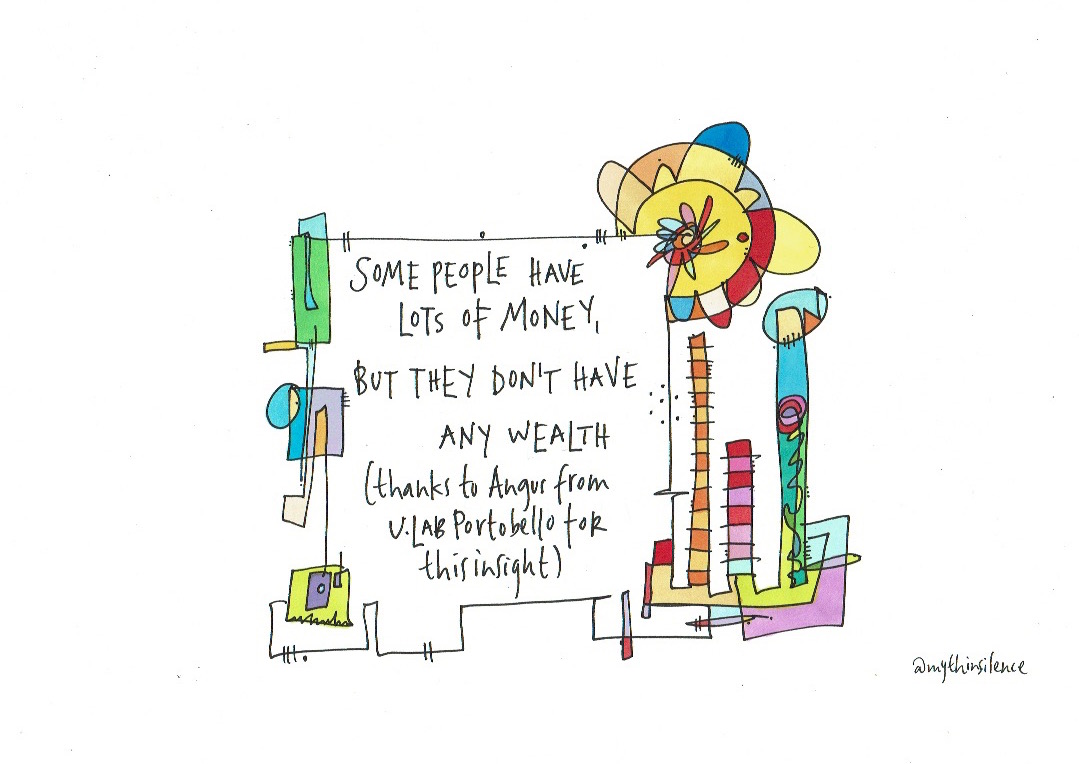 SOME PEOPLE HAVE
LOTS OF MONEY,
BUT THEY DON'T HAVE
ANY WEALTH
(thanks to Angus from
U.LAB Portobello for
this insight)
@mythinsilence